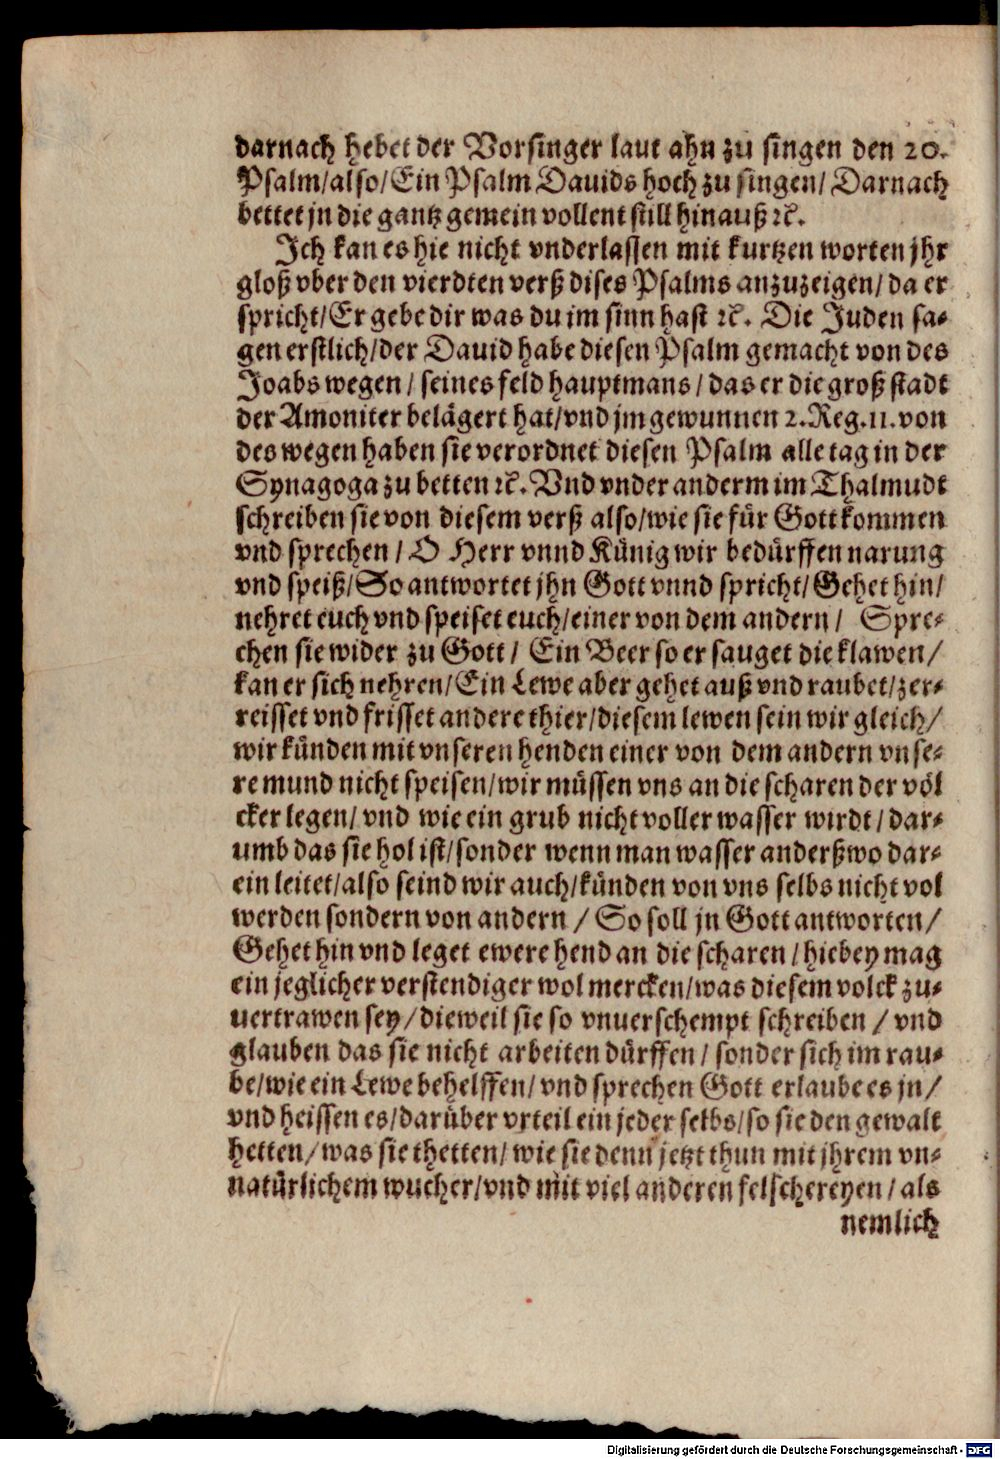 darnach hebet der Vorsinger laut ahn zu singen den 20.
Psalm/also/Ein Psalm Dauids hoch zu singen/ Darnach
bettet jn die gantz gemein vollent still hinauß ꝛc.
Ich kan es hie nicht vnderlassen mit kurtzen worten jhr
gloß vber den vierdten verß dises Psalms anzuzeigen/ da er
spricht/Er gebe dir was du im sinn hast ꝛc. Die Juden sa⸗
gen erstlich/der Dauid habe diesen Psalm gemacht von des
Joabs wegen/ seines feld hauptmans/ das er die groß stadt
der Amoniter belägert hat/vnd jm gewunnen 2.Reg.11.von
des wegen haben sie verordnet diesen Psalm alle tag in der
Synagoga zu betten ꝛc. Vnd vnder anderm im Thalmudt
schreiben sie von diesem verß also/wie sie für Gott kommen
vnd sprechen/ O Herr vnnd Künig wir bedürffen narung
vnd speiß/So antwortet jhn Gott vnnd spricht/Gehet hin/
nehret euch vnd speiset euch/einer von dem andern/ Spre⸗
chen sie wider zu Gott/ Ein Beer so er sauget die klawen/
kan er sich nehren/Ein Lewe aber gehet auß vnd raubet/zer⸗
reisset vnd frisset andere thier/diesem lewen sein wir gleich/
wir künden mit vnseren henden einer von dem andern vnse⸗
re mund nicht speisen/wir müssen vns an die scharen der völ
cker legen/ vnd wie ein grub nicht voller wasser wirdt/ dar⸗
umb das sie hol ist/sonder wenn man wasser anderßwo dar⸗
ein leitet/also seind wir auch/künden von vns selbs nicht vol
werden sondern von andern / So soll jn Gott antworten/
Gehet hin vnd leget ewere hend an die scharen/ hiebey mag
ein jeglicher verstendiger wol mercken/was diesem volck zu⸗
uertrawen sey/dieweil sie so vnuerschempt schreiben / vnd
glauben das sie nicht arbeiten dürffen/ sonder sich im rau⸗
be/wie ein Lewe behelffen/ vnd sprechen Gott erlaube es jn/
vnd heissen es/darüber vrteil ein jeder selbs/so sie den gewalt
hetten/was sie thetten/ wie sie denn jetzt thun mit jhrem vn⸗
natürlichem wucher/vnd mit viel anderen felschereyen/ als
nemlich
Digitalisierung gefördert durch die Deutsche Forschungsgemeinschaft - DFG